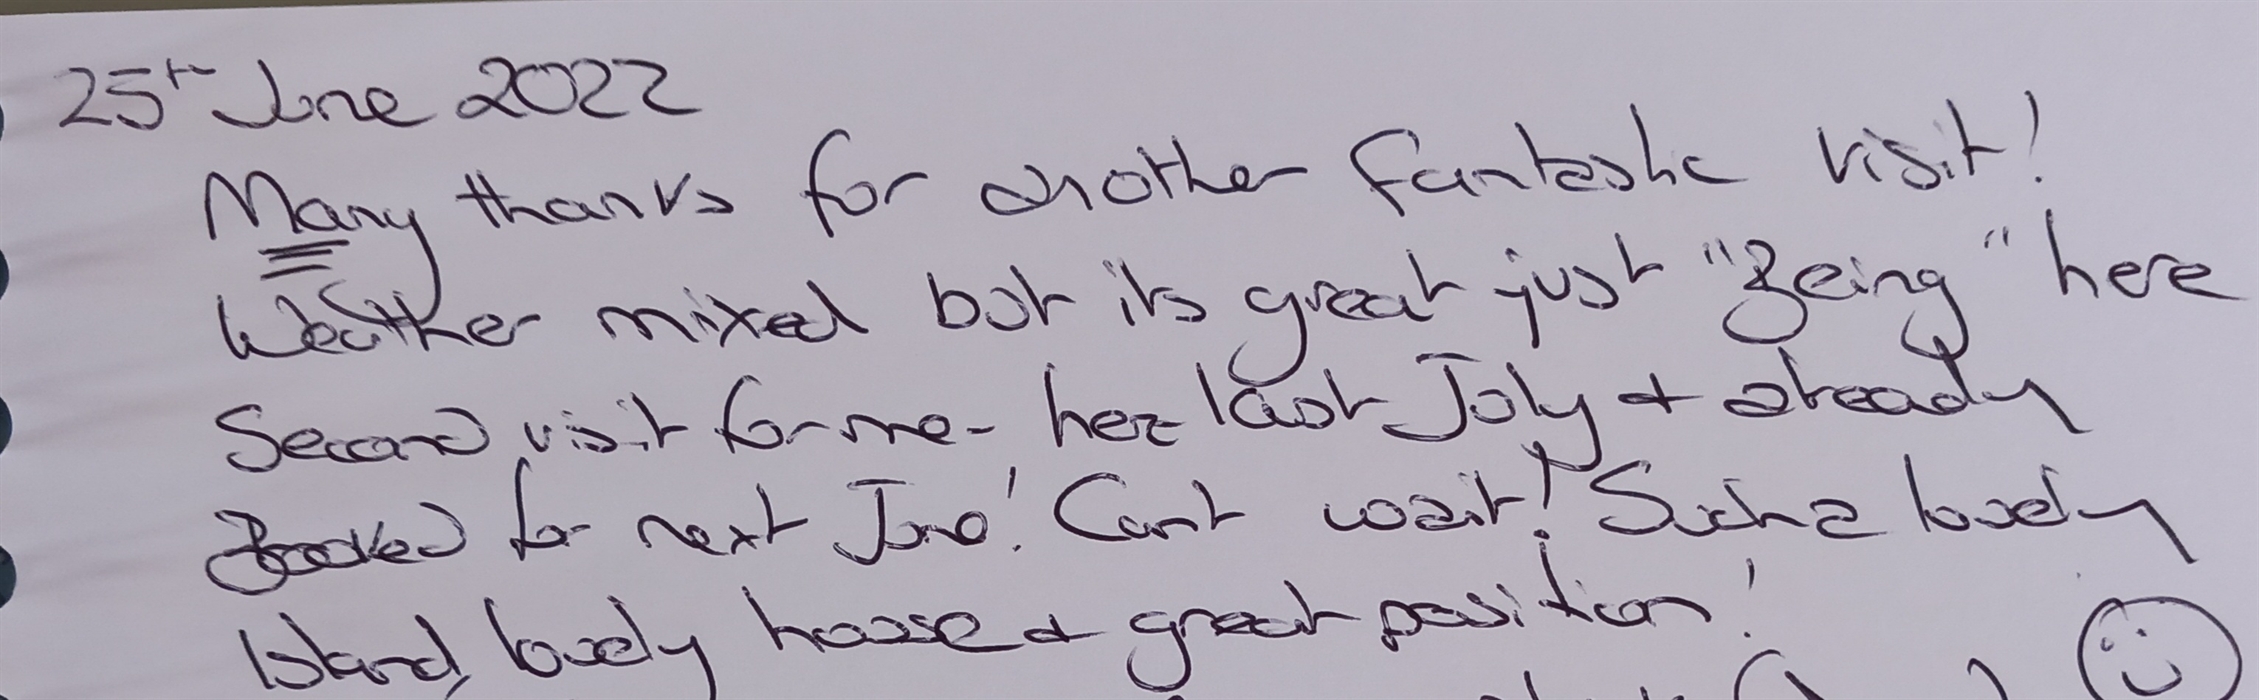 25th June 2022
Many thanks for another fantastic visit!
Weather mixed but its great just "Being" here
Second visit for me - here last July + already
Booked for next June! Cant wait! Such a lovely
Island, lovely house + great position!